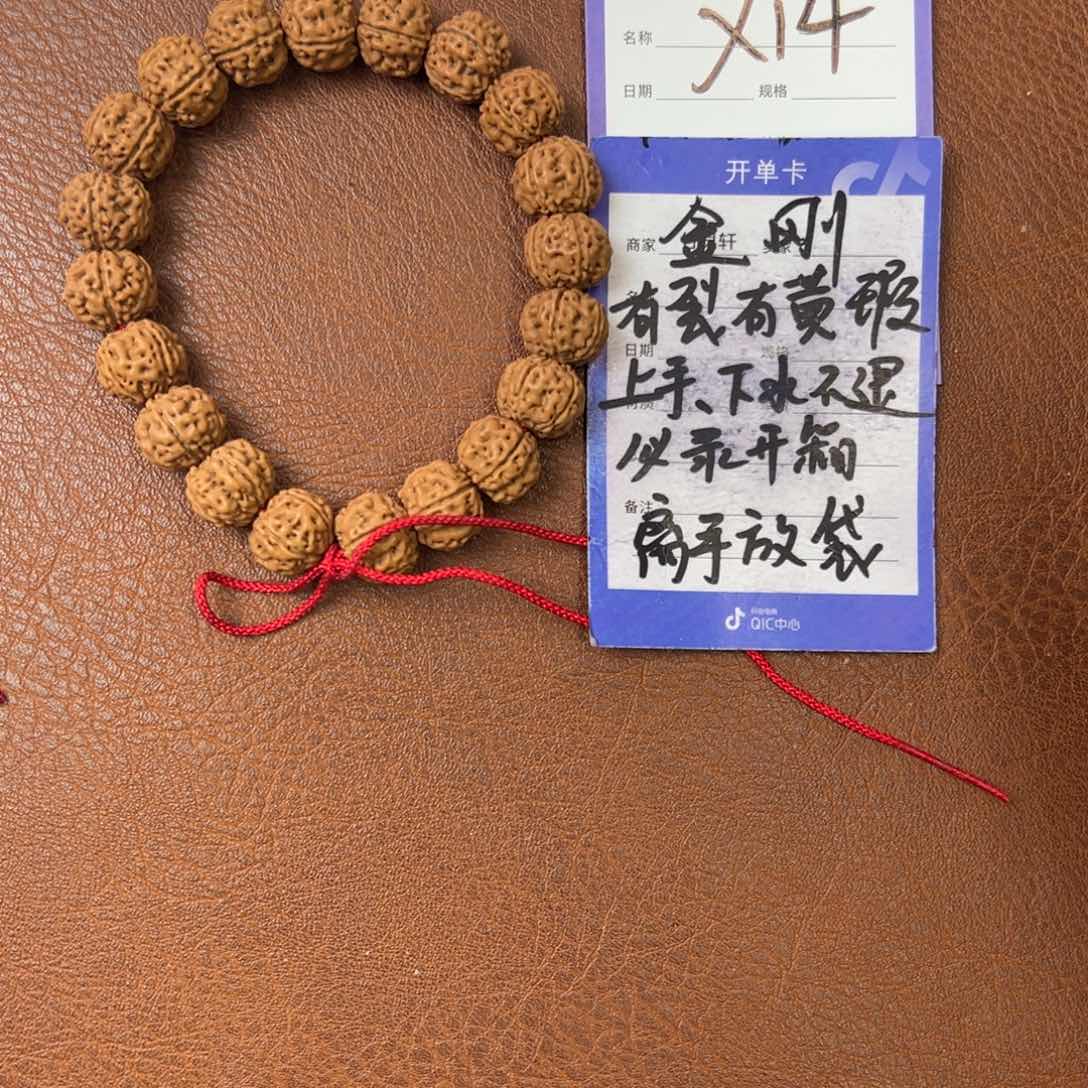 名称 X14
日期 规格
开单卡
商家 轩
金刚
有裂有黄瑕
日期
上手、下水不退
必录开箱
备注
离手放袋
抖音电商
QIC中心